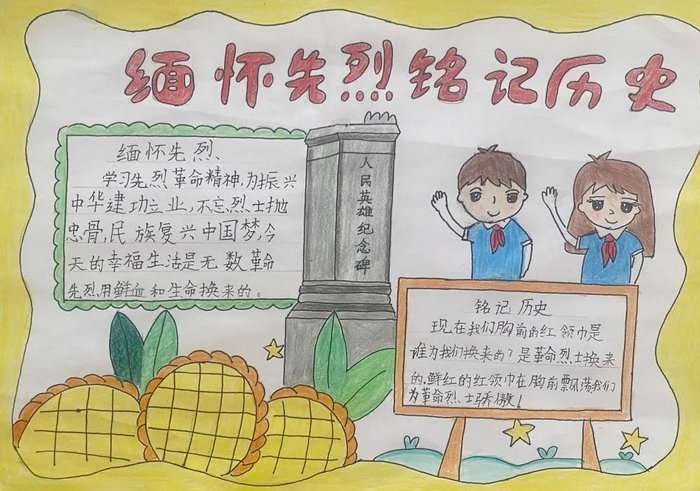 缅怀先烈铭记历史
缅怀先烈、
学习先烈革命精神,为振兴
中华建功立业,不忘烈士抛
忠骨,民族复兴中国梦,今
天的幸福生活是无数革命
先烈用鲜血和生命换来的。
人民英雄纪念碑
铭记历史
现在我们胸前的红领巾是
谁为我们换来的?是革命烈士换来
的,鲜红的红领巾在胸前飘荡我们
为革命烈士骄傲!